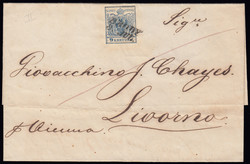 Sigr
Giovacchino J. Chayes.
Livorno
pr Vienna